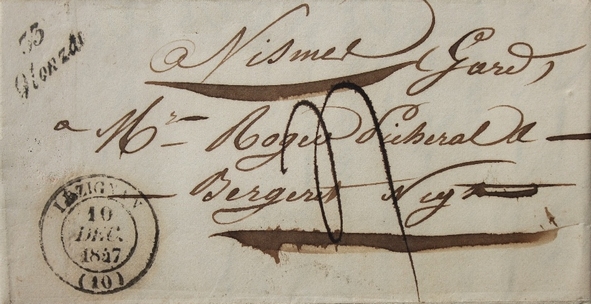 33
Olonzac
a Nismes (Gard)
a Mr Roger Picheral &
Bergeret Negts
LÉZIGNAN
10
DEC.
1847
(10)